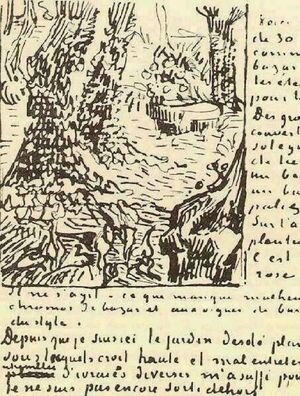 Voici
de 30
comm
bazar
les éte
pour l
Des gro
couvert
sol
de lie
un ba
un bu
Sur l'a
plante
C est
rose
Il ne s'agit - ce que manque malheu
chromos de bazar et aux orgues de bar
du style.
Depuis que je suis ici le jardin desolé plan
sous lesquels croit haute et mal entreten
d'ivraies diverses m'a suffi pour
je ne suis pas encore sorti dehors